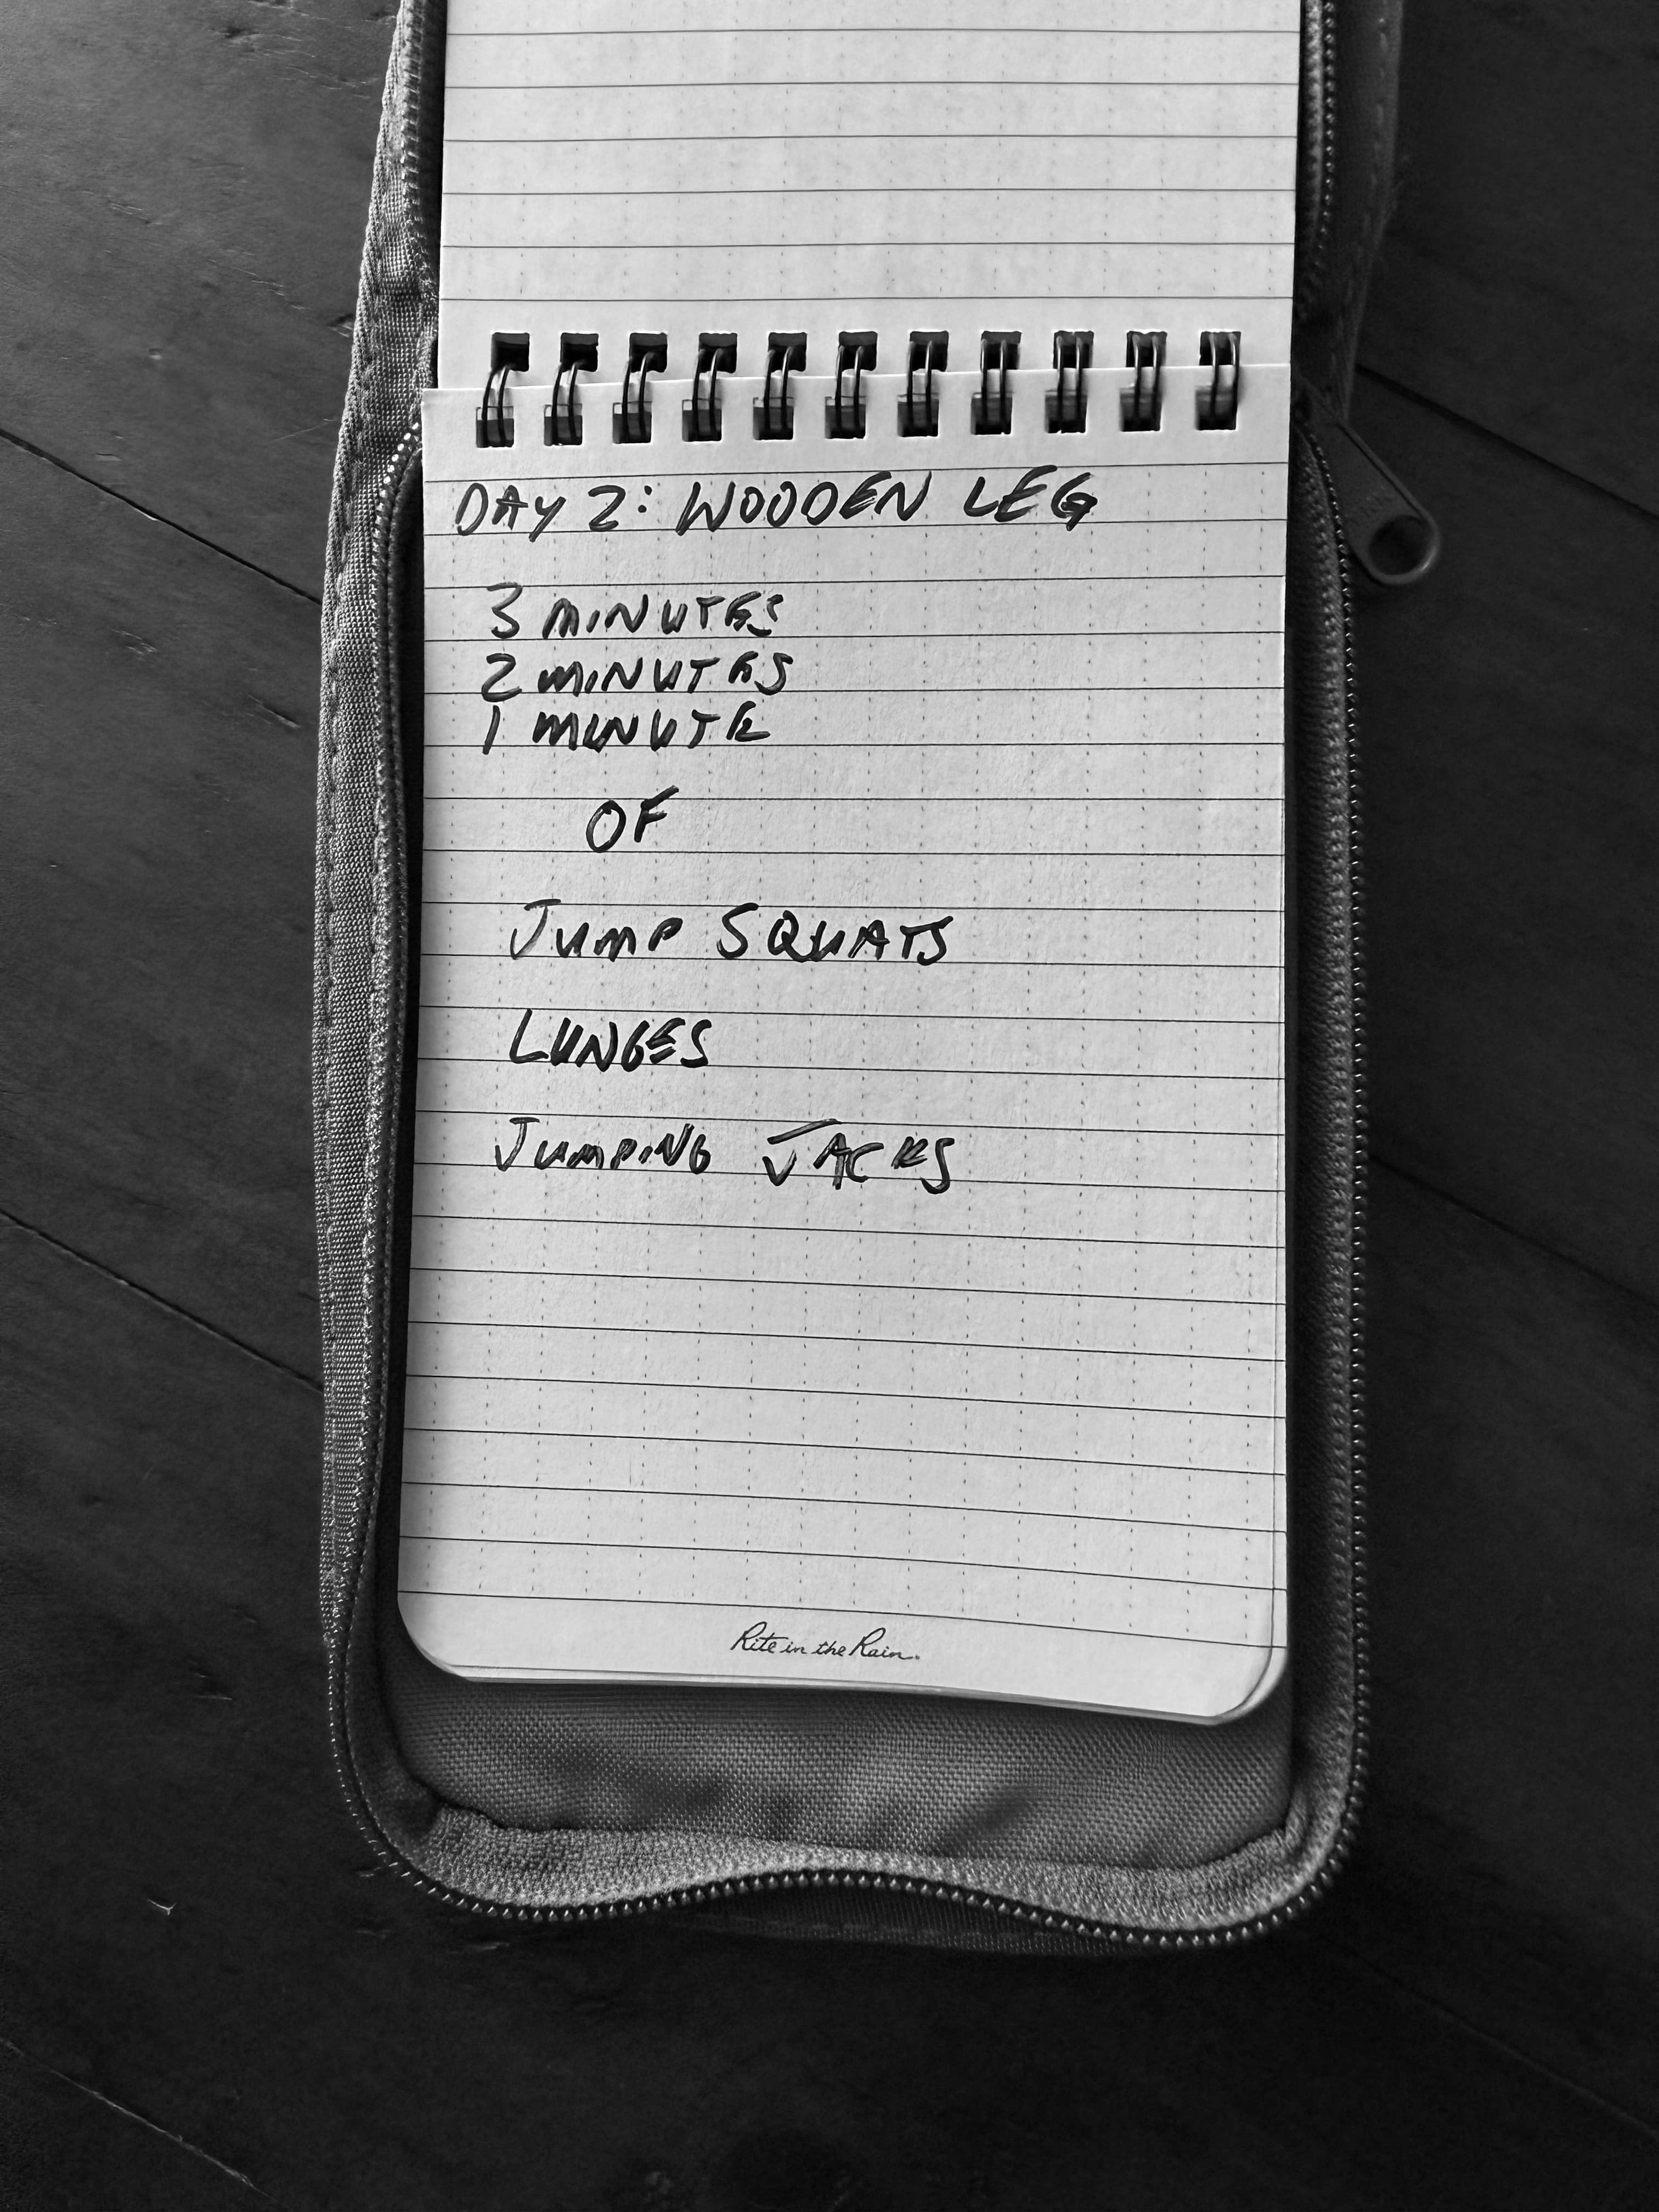 DAY 2: WOODEN LEG
3 MINUTES
2 MINUTES
1 MINUTE
OF
JUMP SQUATS
LUNGES
JUMPING JACKS
Rite in the Rain.